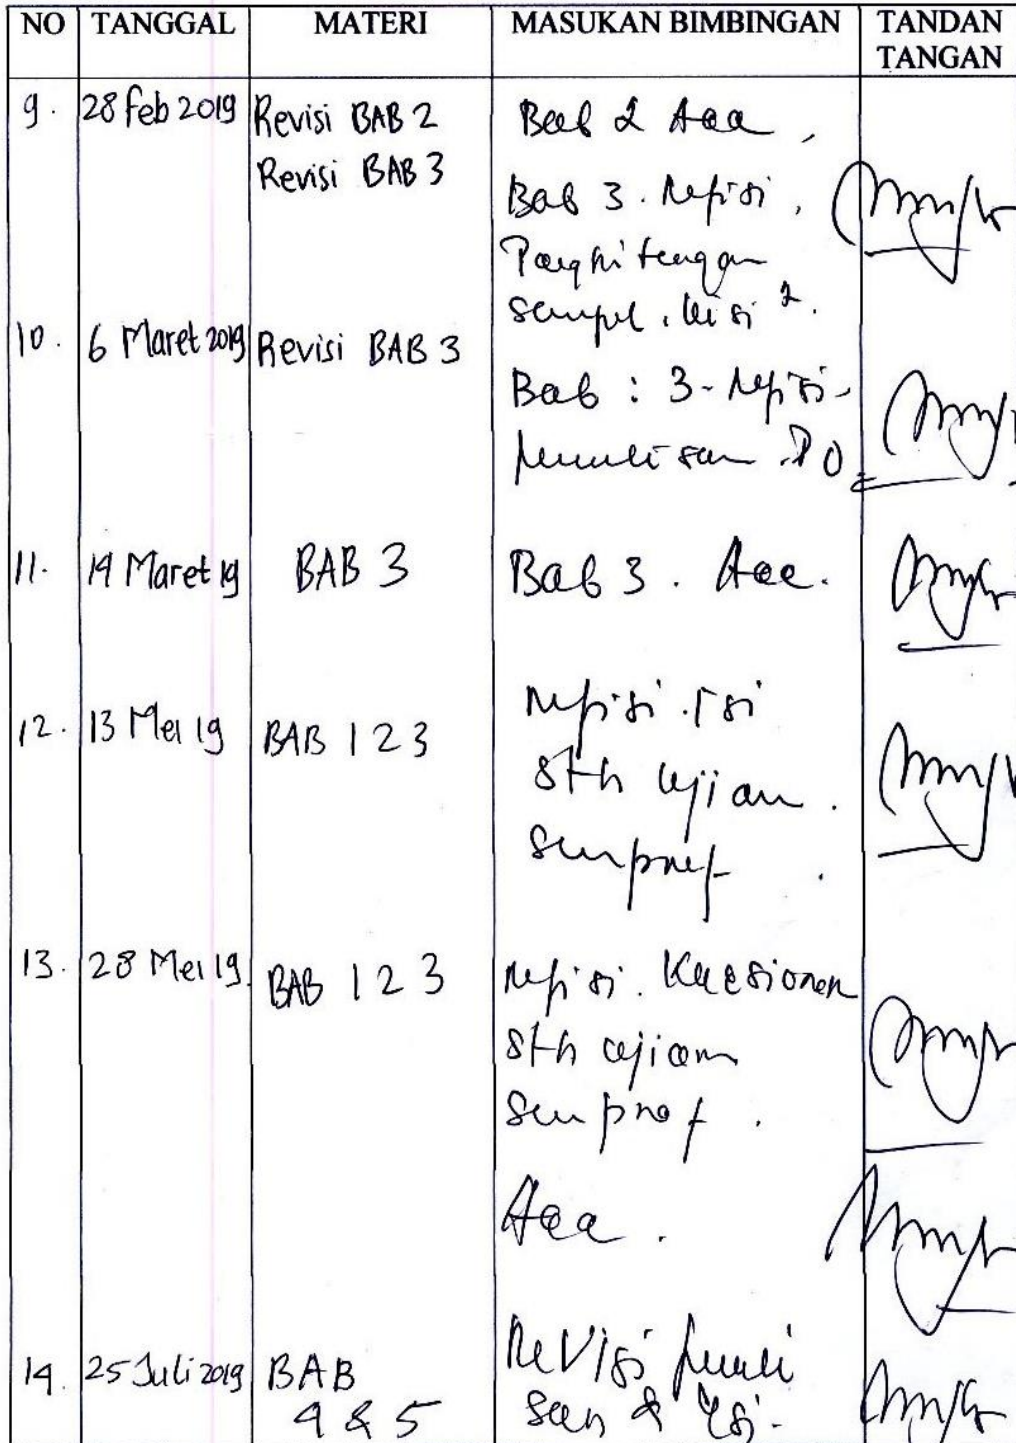 NO TANGGAL MATERI MASUKAN BIMBINGAN TANDAN TANGAN
9. 28 Feb 2019 Revisi BAB 2 Bab 2 Acc,
Revisi BAB 3 Bab 3. Refisi,
Penghitungan
sampel. kisi 2.
10. 6 Maret 2019 Revisi BAB 3
Bab : 3 - Refisi -
penulisan DO
11. 14 Maret 19 BAB 3 Bab 3. Acc.
12. 13 Mei 19 BAB 1 2 3 Refisi. Isi
stlh ujian.
Sempro
13. 28 Mei 19. BAB 1 2 3 Refisi. Kuesioner
stlh ujian
Sempro.
Acc.
14. 25 Juli 2019 BAB Revisi penuli
4 & 5 san & isi-